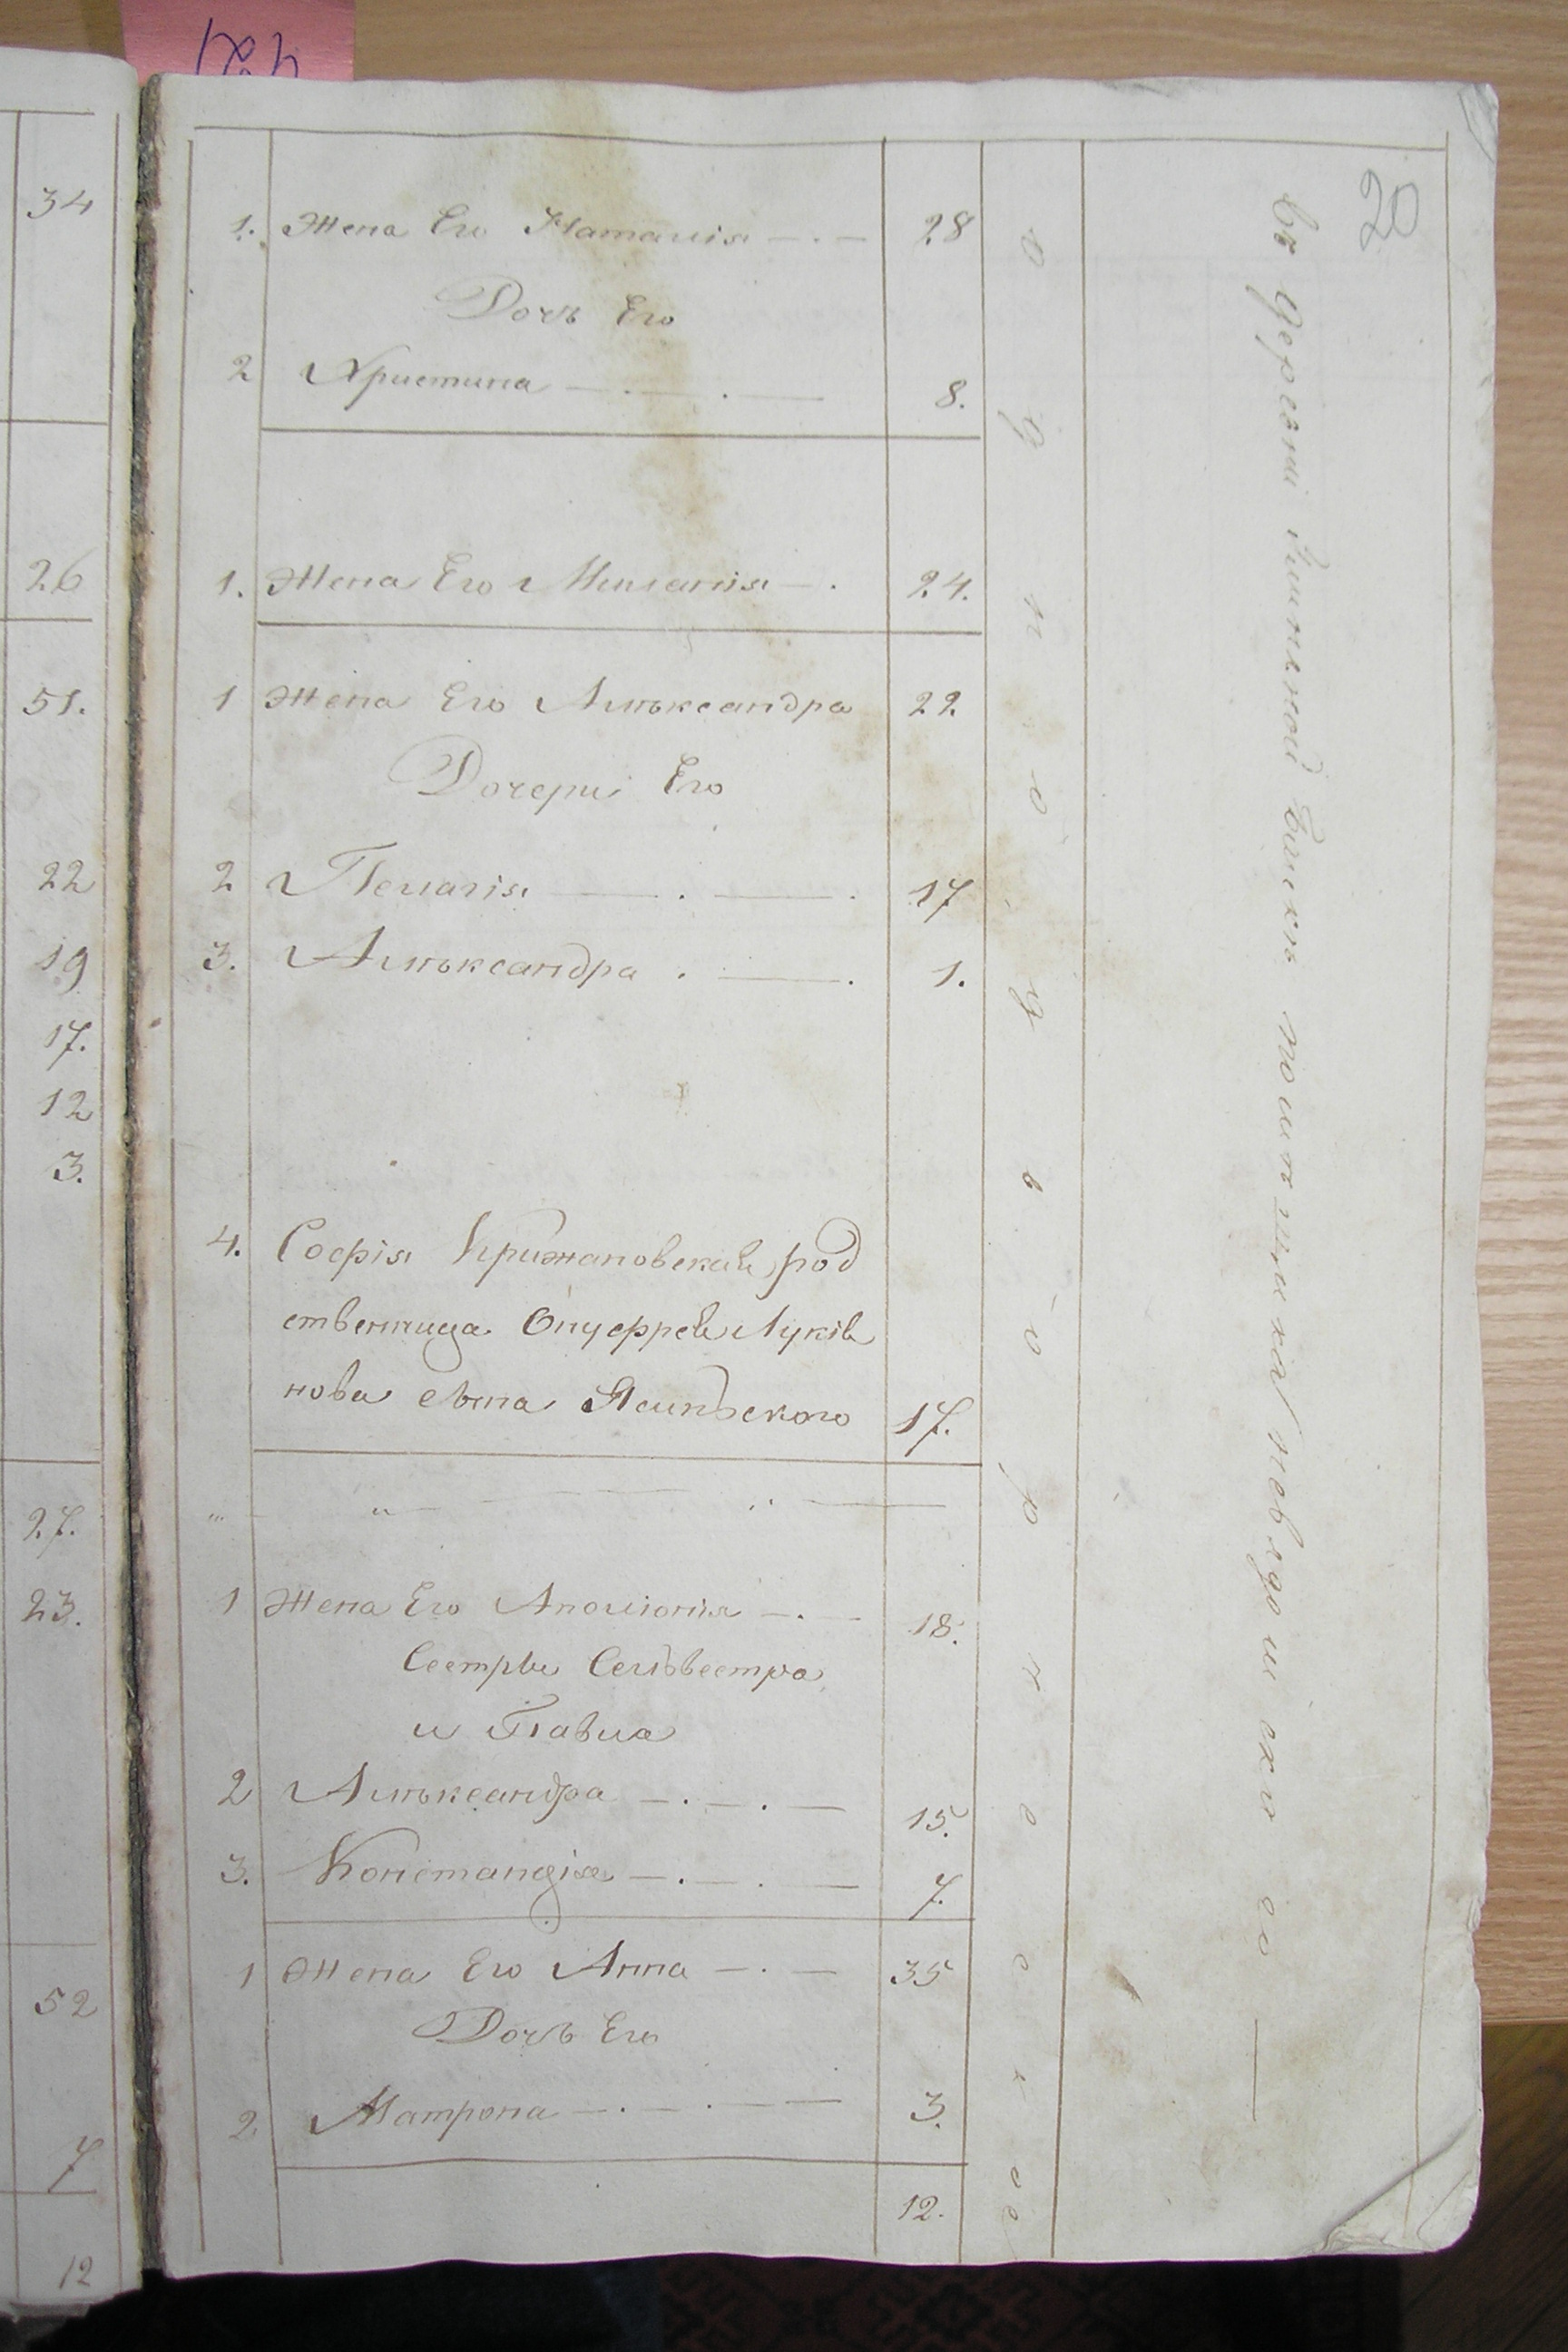 34
26
51.
22
19
17.
12
3.
27.
23.
52
7
12
20
1. Жена Его Наталія 28
Дочь Его
2 Христина 8.
1. Жена Его Меланія 24.
1 Жена Его Алѣксандра 22.
Дочери Его
2 Пелагія 17
3. Алѣксандра 1.
4. Софія Крижановская род
ственница Онуфрея Лукія
нова сына Ясинскаго 17.
1 Жена Его Аполіонія 18.
Сестры Сельвестра
и Павла
2 Алѣксандра 15.
3. Констанція 7.
1 Жена Его Анна 35
Дочь Его
2 Матрона 3.
12.
однодворческое
въ деревни помѣщика